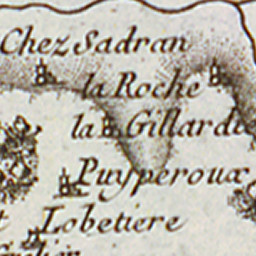 Chez Sadran
la Roche
la Gillardie
Puyperoux
Lobetiere